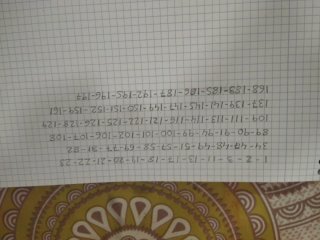 1-2-3-11-13-17-18-19-20-21-22-23
34-48-49-51-57-58-69-77-81-82
89-90-91-94-99-100-101-102-106-107-108
109-111-113-114-116-121-122-125-126-128-129
137-139-141-145-147-149-150-151-152-159-161
168-183-185-186-187-192-195-196-197